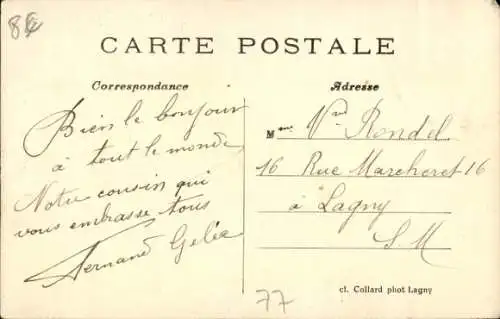 8€
CARTE POSTALE
Correspondance
Adresse
Bien le bonjour
à tout le monde
Notre cousin qui
vous embrasse tous
Fernand Gelée
Mme Vve Rondel
16 Rue Marcheret 16
à Lagny
S. M
cl. Collard phot Lagny
77